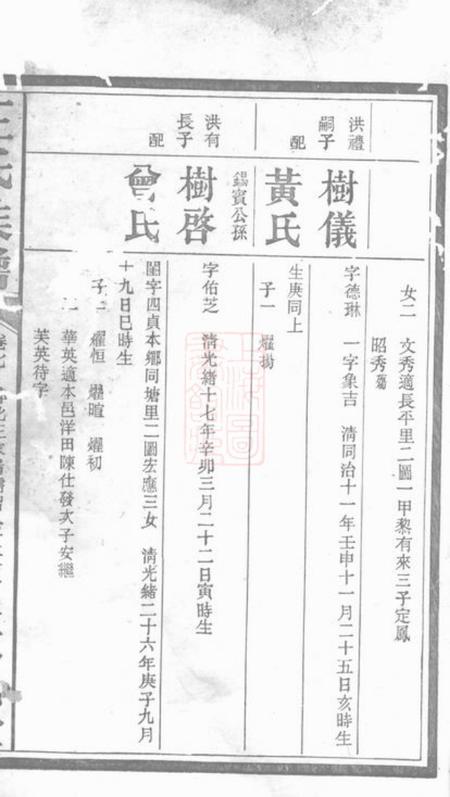 女二 文秀適長平里二圖一甲黎有來三子定鳳
昭秀殤
洪禮嗣子 樹儀 字德琳 一字象吉 清同治十一年壬申十一月二十五日亥時生
配 黃氏 生庚同上
子一
錫賓公孫
洪有長子 樹啓 字佑芝 清光緒十七年辛卯三月二十二日寅時生
配 曾氏 閨字四貞本鄉同塘里二圖宏應三女 清光緒二十六年庚子九月
十九日巳時生
子 燿恒 燿暄 燿初
華英適本邑洋田陳仕發次子安繼
芙英待字
王氏族譜